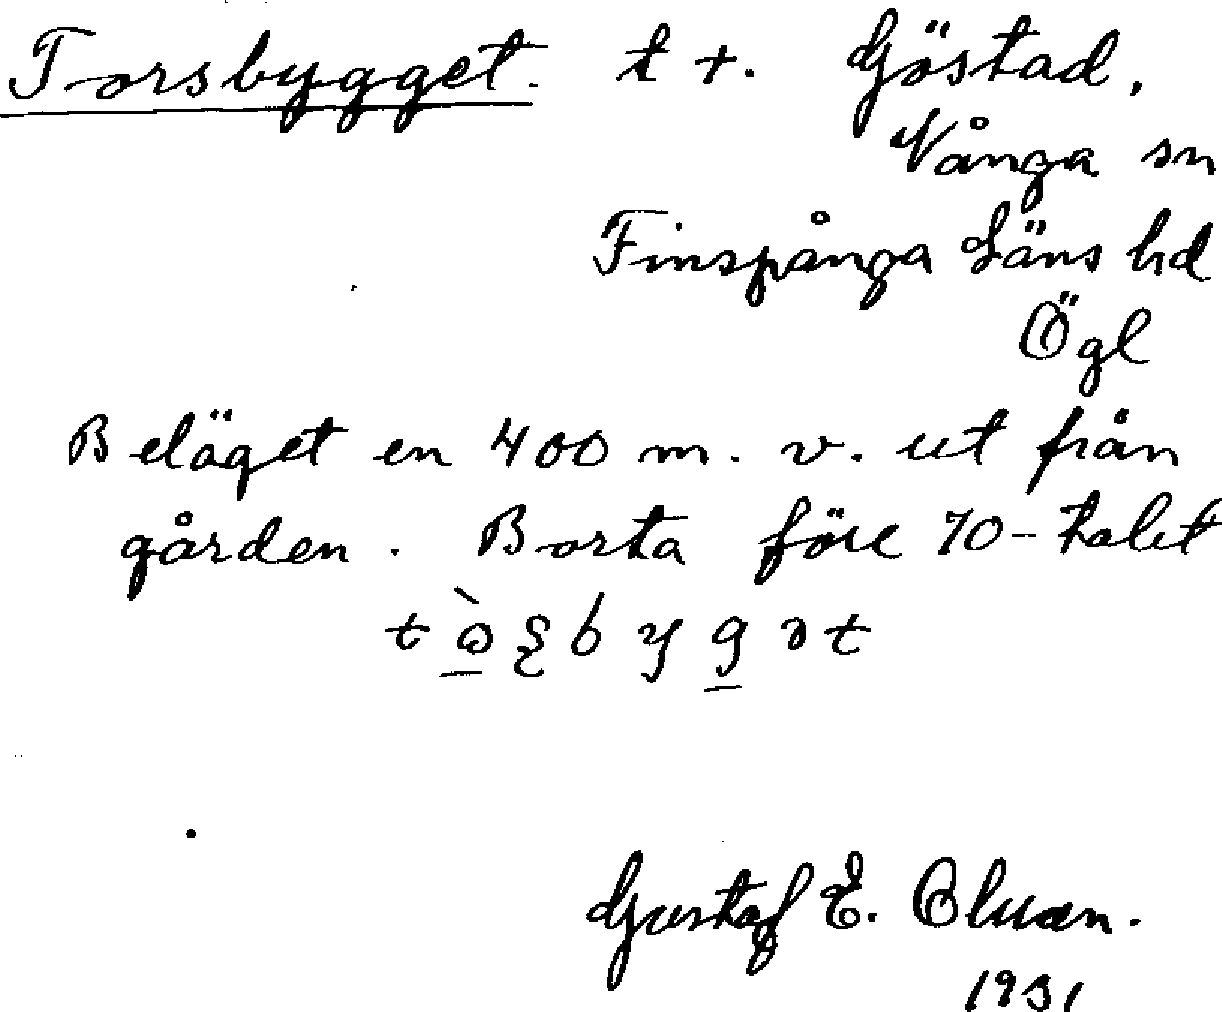 Torsbygget. t +. Göstad,
Vånga sn
Finspånga Läns hd
Ögl
Beläget en 400 m. v. ut från
gården. Borta före 70-talet
Gustaf E.
1931